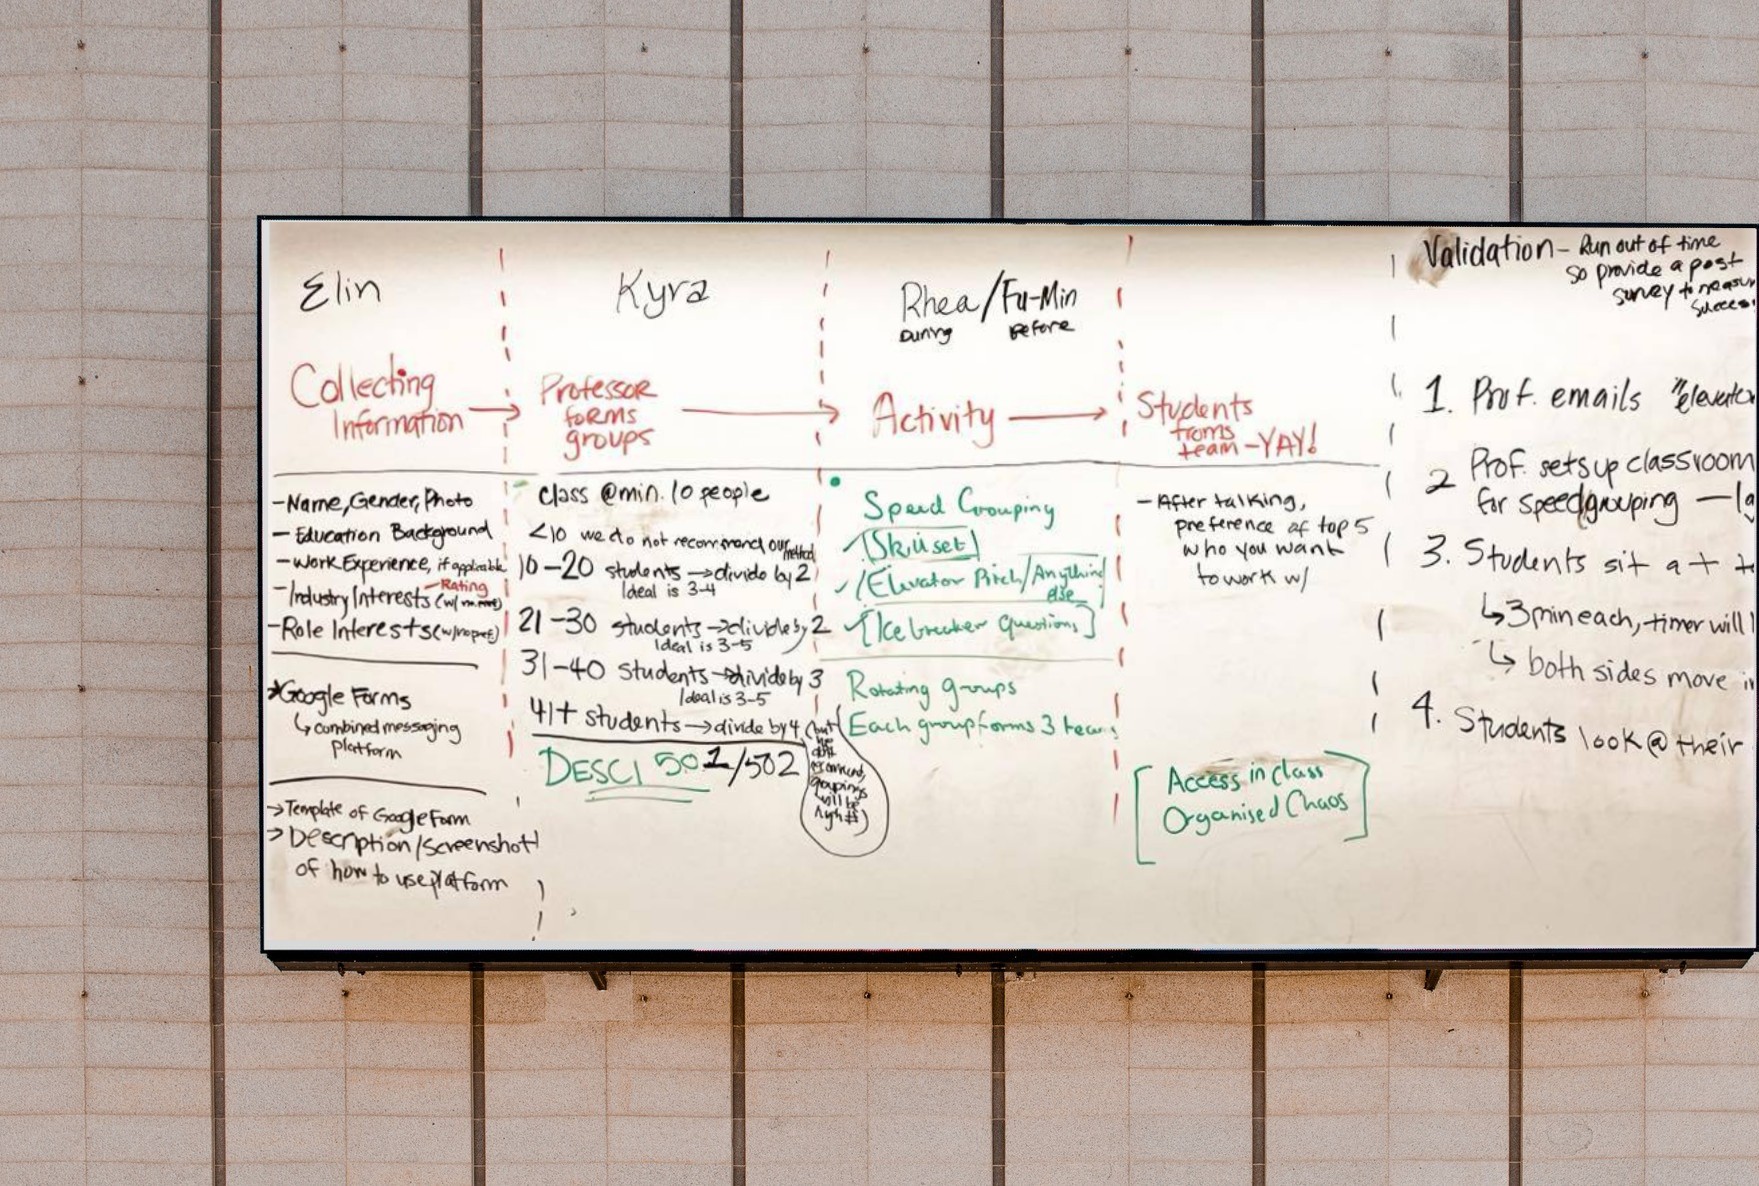 Elin
Collecting
Information
-Name, Gender, Photo
- Education Background
-Work Experience, if applicable
-Rating
-Industry Interests (w/
-Role Interests (w/
*Google Forms
↳ combined messaging
platform
→Template of Google Form
→Description/Screenshot
of how to use platform
Kyra
Professor
forms
groups
class @min. 10 people
<10 we do not recommend our method
10-20 students →divide by 2
Ideal is 3-4
21-30 students →divide by 2
Ideal is 3-5
31-40 students →divide by 3
Ideal is 3-5
41+ students →divide by 4 (but
we
don't
recommend,
groupings
will be
high #)
DESCI 501/502
Rhea/Fu-Min
During Before
Activity
Speed Grouping
[Skillset]
[Elevator Pitch/Anything
else
[Icebreaker Questions]
Rotating groups
Each group forms 3 teams
Students
froms
team -YAY!
-After talking,
preference of top 5
who you want
to work w/
[Access in class
Organised Chaos]
Validation - Run out of time
so provide a post
survey to measur
success
1. Prof. emails "elevator
2 Prof. sets up classroom
for speedgrouping -
3. Students sit at
↳3 min each, timer will
↳ both sides move
4. Students look @ their